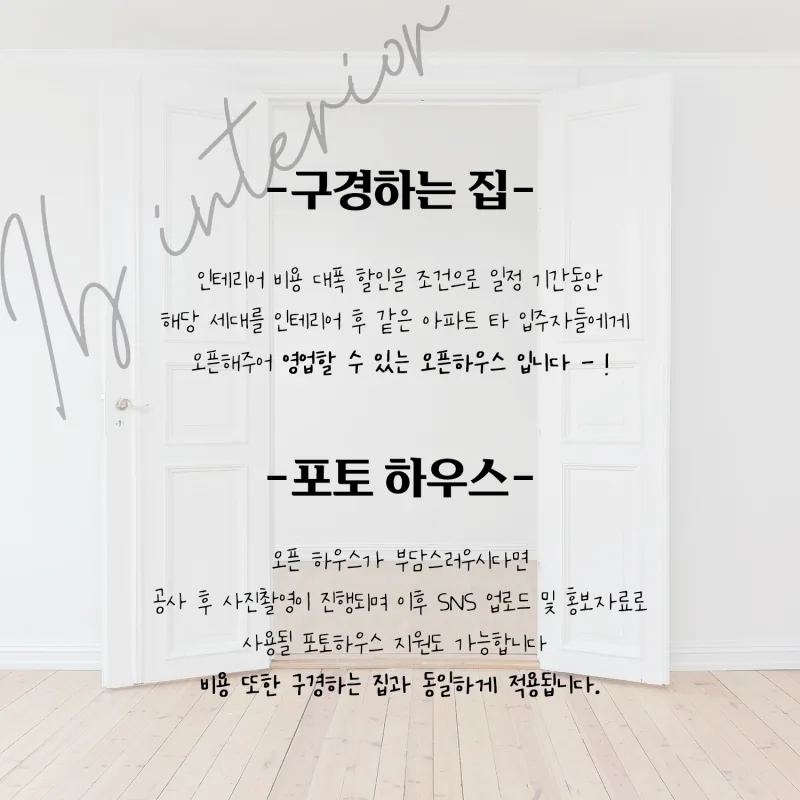 1b interior
-구경하는 집-
인테리어 비용 대폭 할인을 조건으로 일정 기간동안
해당 세대를 인테리어 후 같은 아파트 타 입주자들에게
오픈해주어 영업할 수 있는 오픈하우스 입니다 - !
-포토 하우스-
오픈 하우스가 부담스러우시다면
공사 후 사진촬영이 진행되며 이후 SNS 업로드 및 홍보자료로
사용될 포토하우스 지원도 가능합니다
비용 또한 구경하는 집과 동일하게 적용됩니다.